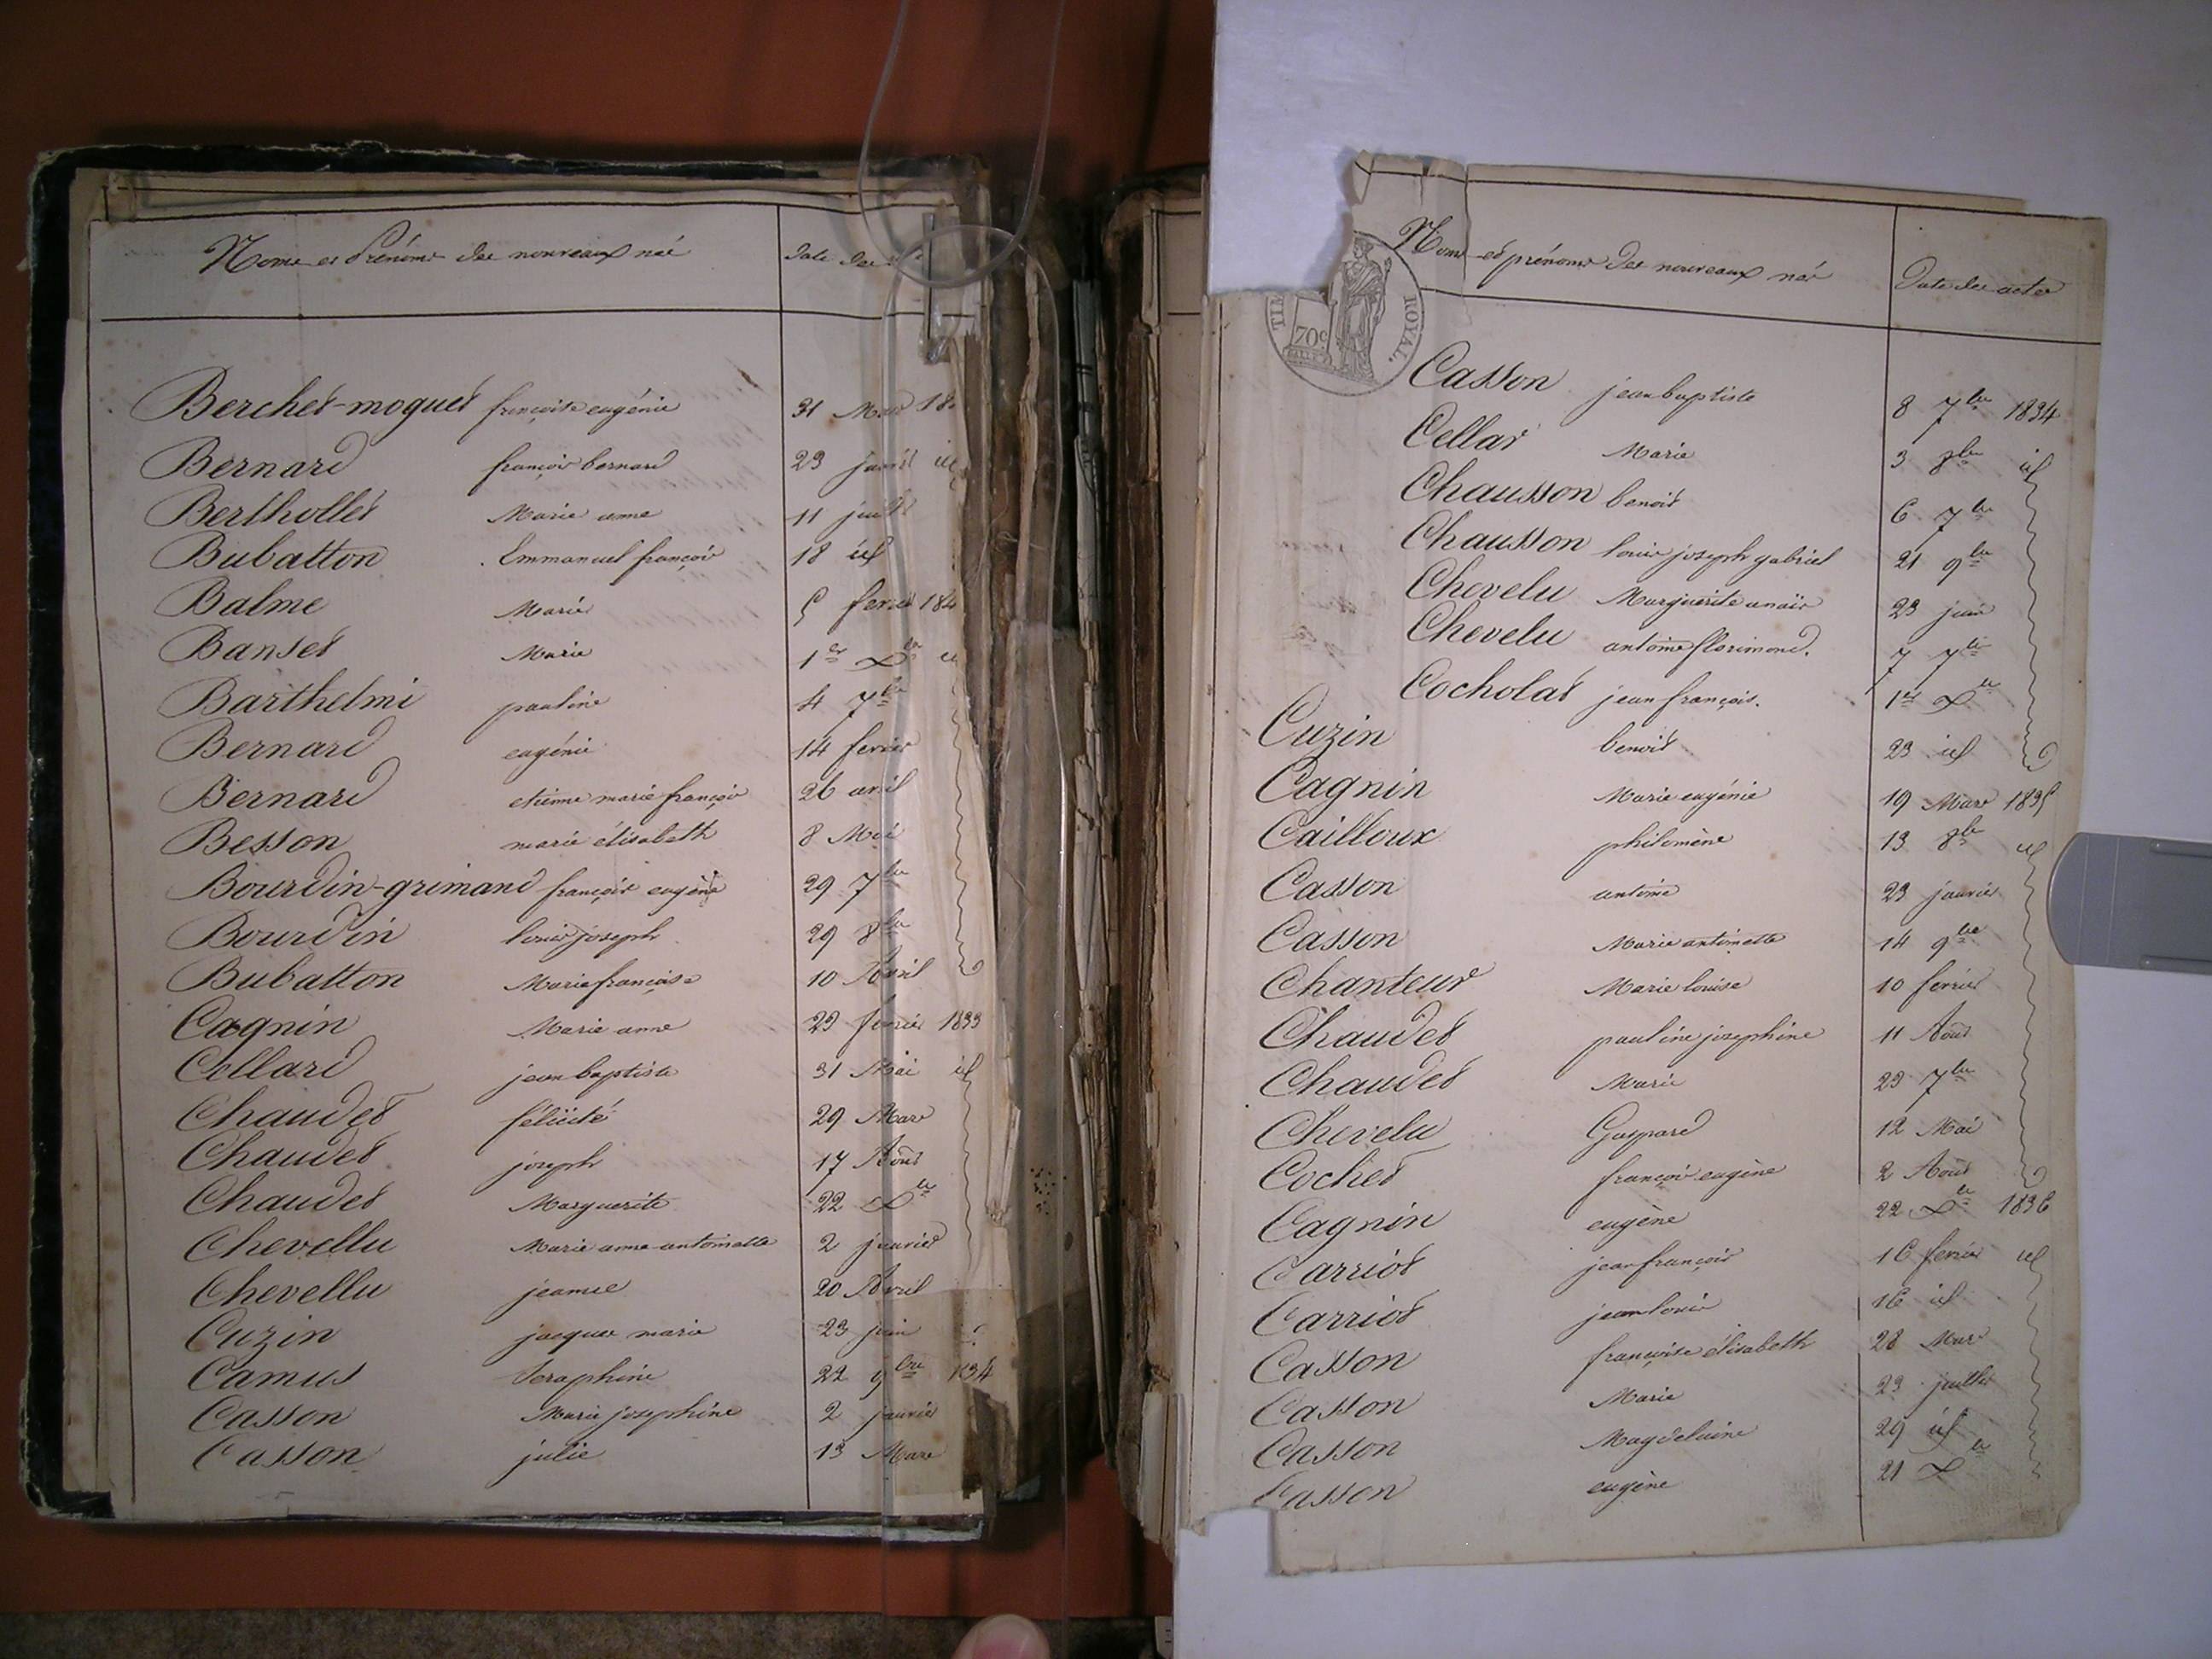 Noms et Prénoms des nouveaux née Date des
Berchet-moguet françoise eugénie 31 Mars 18
Bernard françois bernard 23 janvl id
Berthollet Marie anne 11 juillet
Bubatton Emmanuel françois 18 id
Balme Marie 5 fevrier 184
Banset Marie 1er Xbre id
Barthelmi pauline 4 7bre
Bernard eugénie 14 fevrier
Bernard etienne marie françois 26 avril
Besson marie élisabeth 8 Mai
Bourdin-grimand françois eugène 29 7bre
Bourdin louis joseph 29 8bre
Bubatton Marie françoise 10 Avril
Cagnin Marie anne 23 fevrier 1833
Cellard jean baptiste 31 Mai id
Chaudet félicité 29 Mars
Chaudet joseph 17 Aout
Chaudet Marguerite 22 Xbre
Chevellu Marie anne antoinette 2 janvier
Chevellu jeanne 20 Avril
Cuzin jacques marie 23 juin
Camus Seraphine 22 9bre 1834
Casson Marie josephine 2 janvier
Casson julie 13 Mars
TIM ROYAL. 70c.
Noms et prénoms des nouveaux née Date des actes
Casson jean baptiste 8 7bre 1834
Cellar Marie 3 8bre id
Chausson benoit 6 7bre
Chausson louis joseph gabriel 21 9bre
Chevelu Marguerite anaïs 23 juin
Chevelu antoine florimond. 7 7bre
Cocholat jean françois. 1er Xbre
Cuzin benoit 23 id
Cagnin Marie eugénie 19 Mars 1835
Cailloux philomène 13 8bre id
Casson antoine 23 janvier
Casson Marie antoinette 14 9bre
Chanteur Marie louise 10 février
Chaudet pauline josephine 11 Aout
Chaudet Marie 23 7bre
Chevelu Gaspard 12 Mai
Cochet françois eugène 2 Aout
Cagnin eugène 22 Xbre 1836
Carriot jean françois 16 fevrier id
Carriot jean louis 16 id
Casson françoise élisabeth 28 Mars
Casson Marie 23 juillet
Casson Magdelaine 29 id
Casson eugène 21 Xbre